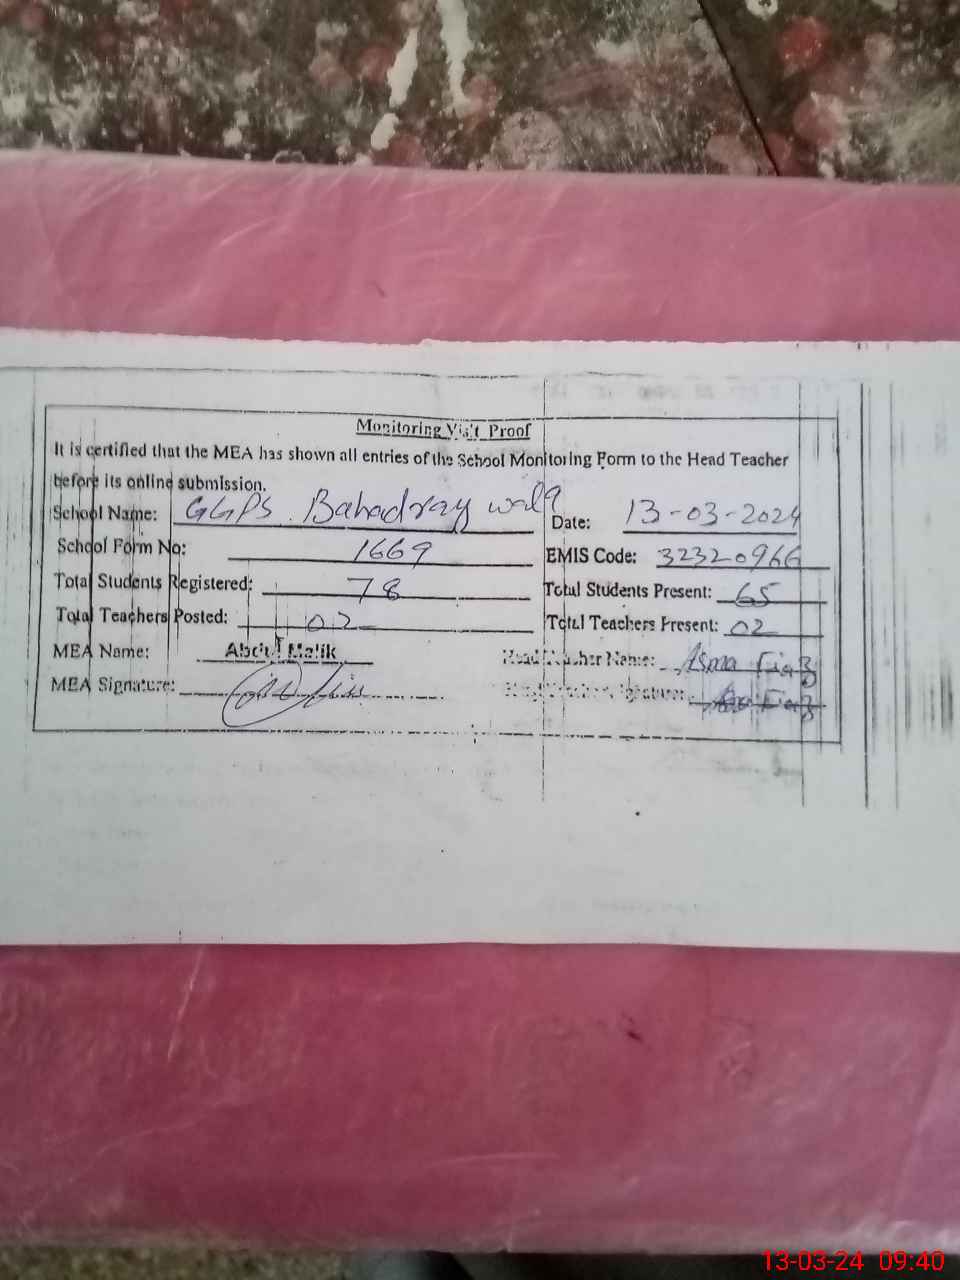 Monitoring Visit Proof
It is certified that the MEA has shown all entries of the School Monitoring Form to the Head Teacher
before its online submission.
School Name: GGPS Bahadray wala Date: 13-03-2024
School Form No: 1669 EMIS Code: 32320966
Total Students Registered: 78 Total Students Present: 65
Total Teachers Posted: 02 Total Teachers Present: 02
MEA Name: Abdul Malik Head Teacher Name: Asma Fiaz
MEA Signature: Head Teacher Signature:
13-03-24 09:40